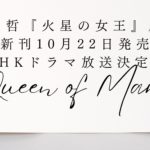 哲『火星の女王』
新刊10月22日発売
HKドラマ放送決定
Queen of Mar